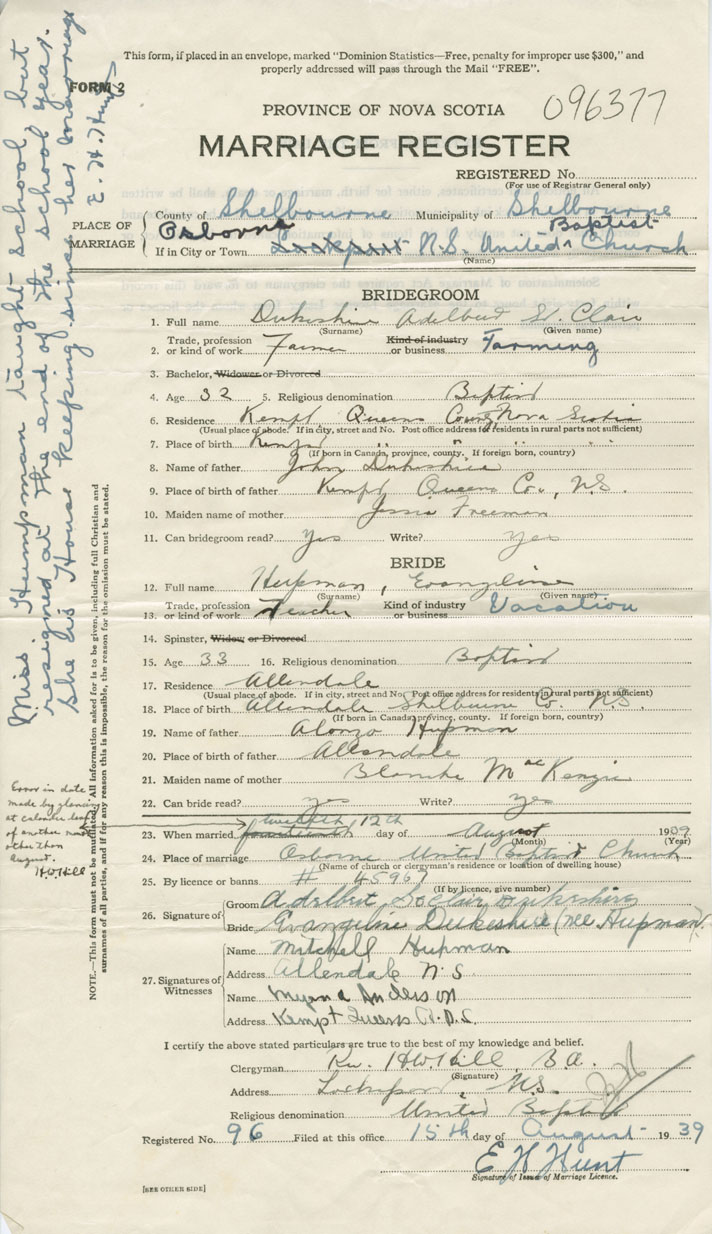 This form, if placed in an envelope, marked "Dominion Statistics—Free, penalty for improper use $300," and
properly addressed will pass through the Mail "FREE".
FORM 2
PROVINCE OF NOVA SCOTIA
096377
MARRIAGE REGISTER
REGISTERED No.
(For use of Registrar General only)
PLACE OF MARRIAGE
County of Shelbourne Municipality of Shelbourne
Osborne Baptist
If in City or Town Lockport N.S. United Church
(Name)
BRIDEGROOM
1. Full name Dukeshire Adelbert St. Clair
(Surname) (Given name)
2. Trade, profession or kind of work Farmer Kind of industry or business Farming
3. Bachelor, Widower or Divorced
4. Age 32 5. Religious denomination Baptist
6. Residence Kempt Queens County Nova Scotia
(Usual place of abode. If in city, street and No. Post office address for residents in rural parts not sufficient)
7. Place of birth Kempt " " " "
(If born in Canada, province, county. If foreign born, country)
8. Name of father John Dukeshire
9. Place of birth of father Kempt Queens Co., N.S.
10. Maiden name of mother Jessie Freeman
11. Can bridegroom read? Yes Write? Yes
BRIDE
12. Full name Hupman, Evangeline
(Surname) (Given name)
13. Trade, profession or kind of work Teacher Kind of industry or business Vacation
14. Spinster, Widow or Divorced
15. Age 33 16. Religious denomination Baptist
17. Residence Allendale
(Usual place of abode. If in city, street and No. Post office address for residents in rural parts not sufficient)
18. Place of birth Allendale Shelburne Co. N.S.
(If born in Canada, province, county. If foreign born, country)
19. Name of father Alonzo Hupman
20. Place of birth of father Allendale
21. Maiden name of mother Blanche MacKenzie
22. Can bride read? yes Write? yes
twelfth 12th
23. When married fourteenth day of August 1939
(Month) (Year)
24. Place of marriage Osborne United Baptist Church
(Name of church or clergyman's residence or location of dwelling house)
25. By licence or banns # 45967
(If by licence, give number)
26. Signature of
Groom Adelbert St clair Dukeshire
Bride Evangeline Dukeshire (nee Hupman)
27. Signatures of Witnesses
Name Mitchell Hupman
Address Allendale N S
Name Myrna Anderson
Address Kempt Queens Co. N.S.
I certify the above stated particulars are true to the best of my knowledge and belief.
Clergyman Rev. H.W. Hill, B.A.
(Signature)
Address Lockeport, N.S.
Religious denomination United Baptist
Registered No. 96 Filed at this office 15th day of August 1939
E H Hunt
Signature of Issuer of Marriage Licence.
[SEE OTHER SIDE]
Miss Humpman taught school, but
resigned at the end of the school year.
She is House keeping since her marriage
E. H. Hunt
NOTE.—This form must not be mutilated. All information asked for is to be given, including full Christian and
surnames of all parties, and if for any reason this is impossible, the reason for the omission must be stated.
Error in date
made by glancing
at calendar leaf
of another month
other than
August.
HW Hill